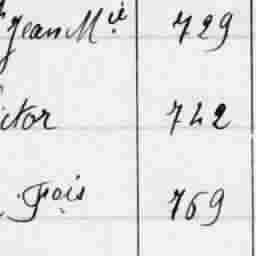 Jean Mie 729
ictor 742
Fois 769